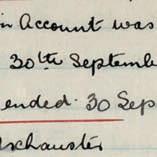 in Account was
30th Septemb
ended. 30 Sep
Exhauster